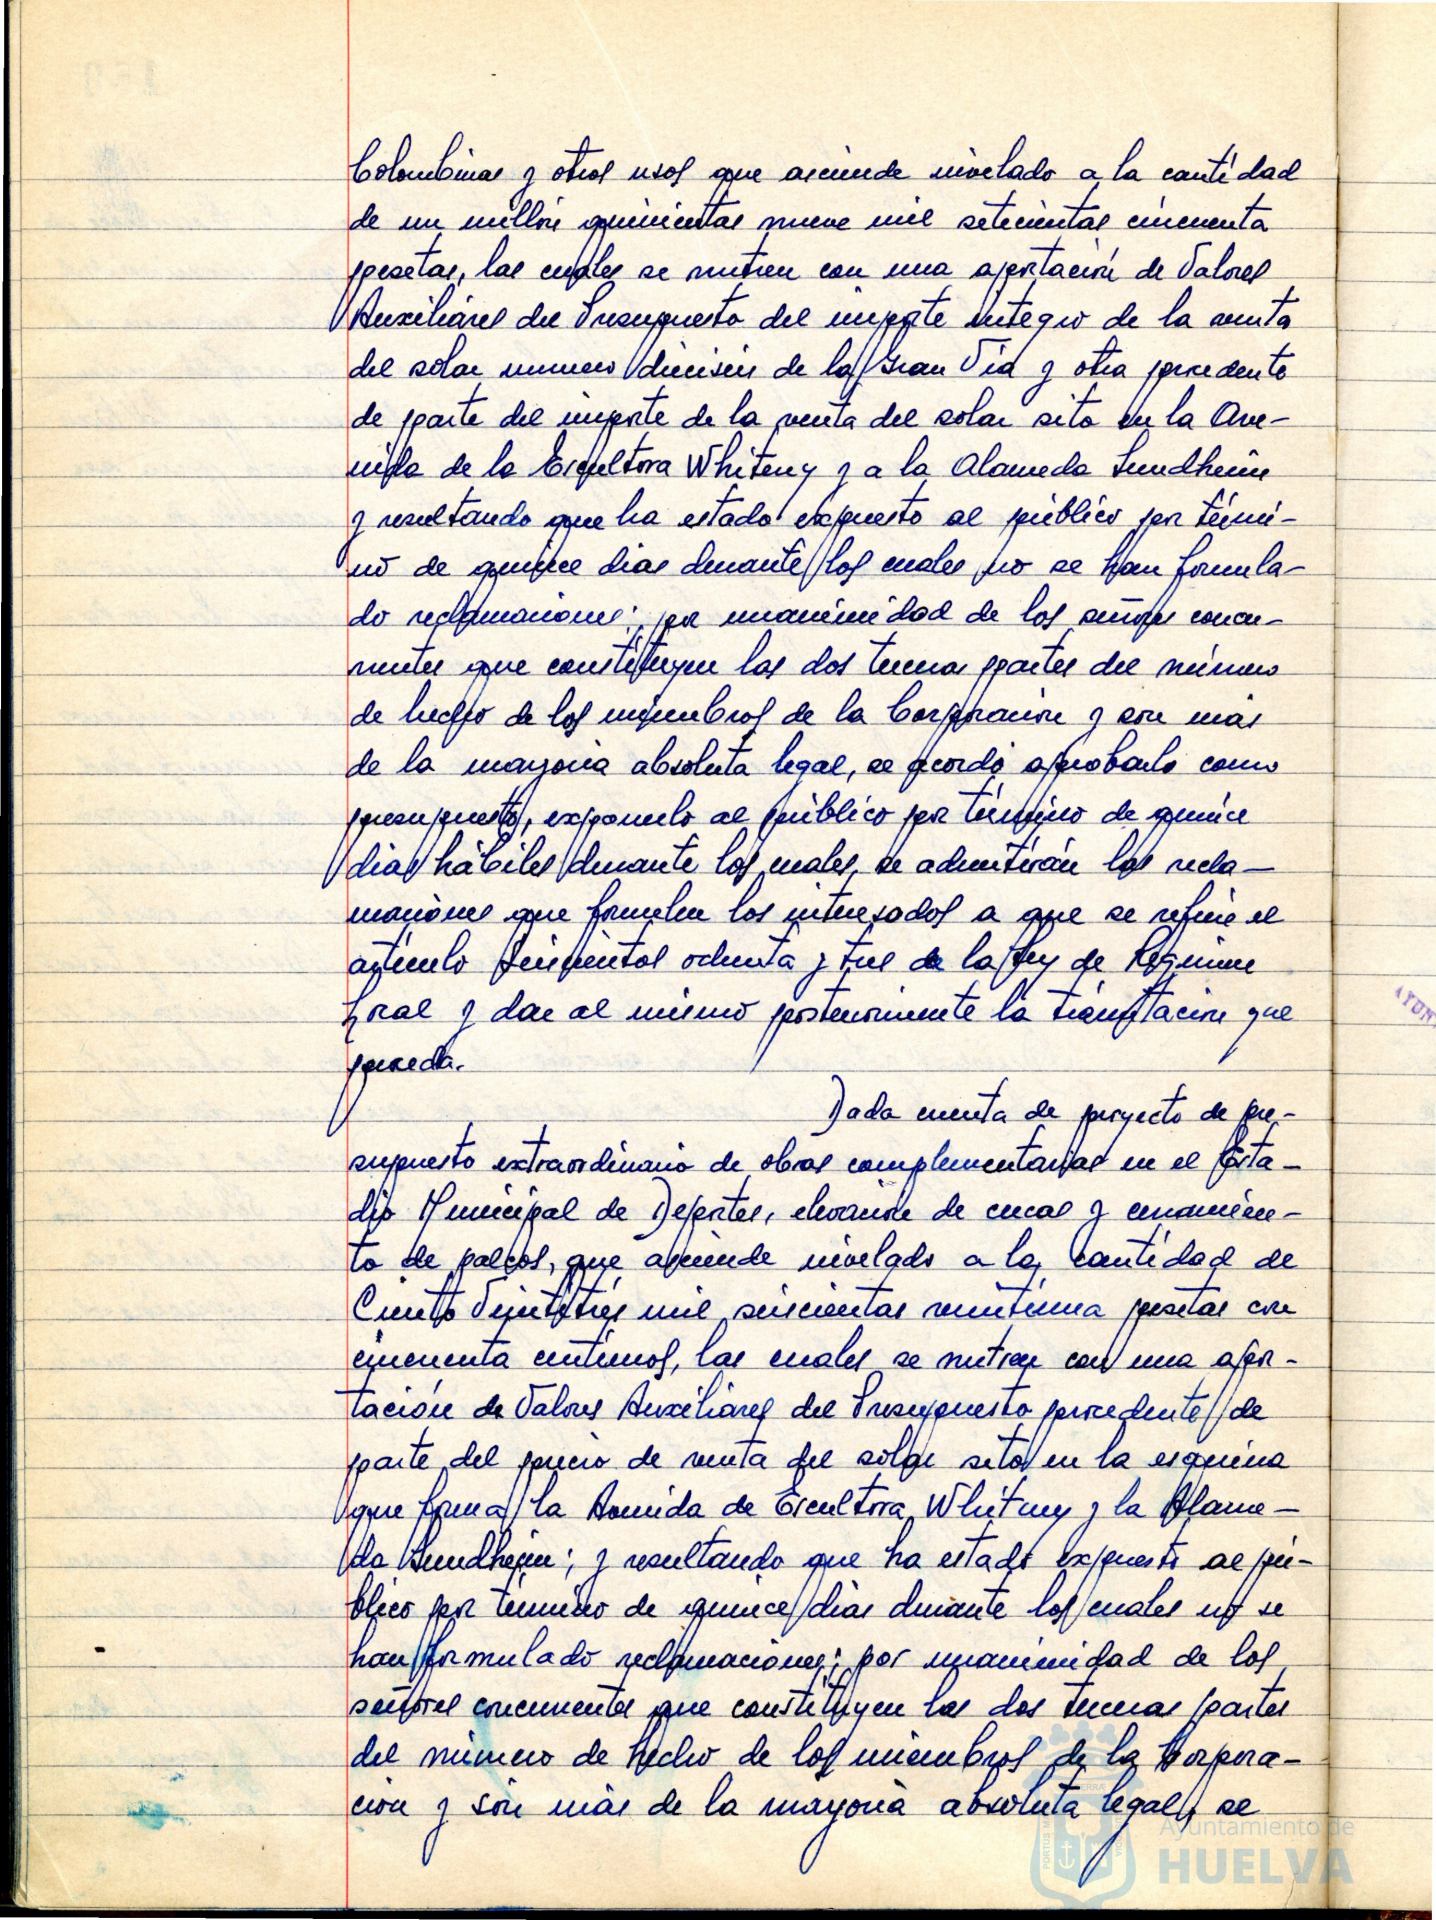 Colombinas y otros usos que asciende nivelado a la cantidad
de un millón quinientas nueve mil setecientas cincuenta
pesetas, las cuales se nutren con una aportación de Valores
Auxiliares del Presupuesto del importe íntegro de la venta
del solar número dieciseis de la Gran Vía y otra procedente
de parte del importe de la venta del solar sito en la Ave-
nida de la Escultora Whiteny y a la Alameda Sundheim
y resultando que ha estado expuesto al público por térmi-
no de quince dias durante los cuales no se han formula-
do reclamaciones; por unanimidad de los señores concu-
rrentes que constituyen las dos terceras partes del número
de hecho de los miembros de la Corporación y son más
de la mayoría absoluta legal, se acordó aprobarlo como
presupuesto, exponerlo al público por término de quince
dias hábiles durante los cuales se admitirán las recla-
maciones que formulen los interesados a que se refiere el
artículo seiscientos ochenta y tres de la Ley de Régimen
Local y dar al mismo posteriormente la tramitación que
proceda.
Dada cuenta de proyecto de pre-
supuesto extraordinario de obras complementarias en el Esta-
dio Municipal de Deportes, elevación de cercas y cerramien-
to de palcos, que asciende nivelado a la cantidad de
Ciento Veintitrés mil seiscientas veintiuna pesetas con
cincuenta centimos, las cuales se nutren con una apor-
tación de Valores Auxiliares del Presupuesto procedente de
parte del precio de venta del solar sito en la esquina
que forma la Avenida de Escultora Whitney y la Alame-
da Sundheim; y resultando que ha estado expuesto al pú-
blico por término de quince dias durante los cuales no se
han formulado reclamaciones; por unanimidad de los
señores concurrentes que constituyen las dos terceras partes
del número de hecho de los miembros de la Corpora-
ción y son más de la mayoría absoluta legal, se
Ayuntamiento de
HUELVA